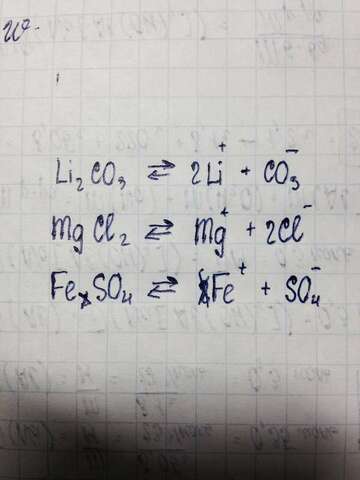 Li₂CO₃ ⇄ 2Li⁺ + CO₃⁻
MgCl₂ ⇄ Mg⁺ + 2Cl⁻
FeSO₄ ⇄ Fe⁺ + SO₄⁻